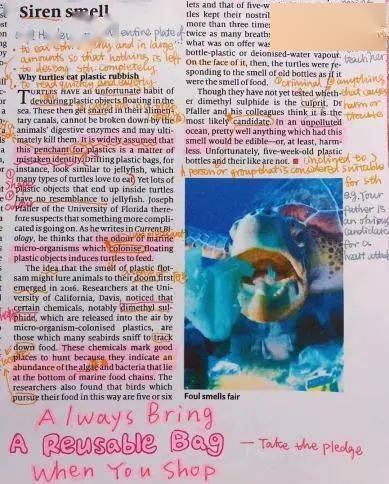 Siren smell
entire plate of
and in large
amounts so that nothing is left
to destroy sth. completely
Why turtles eat plastic rubbish
TURTLES HAVE an unfortunate habit of
devouring plastic objects floating in the
sea. These then get snared in their alimen-
tary canals, cannot be broken down by the
animals' digestive enzymes and may ulti-
mately kill them. It is widely assumed that
this penchant for plastics is a matter of
mistaken identity. Drifting plastic bags, for
instance, look similar to jellyfish, which
many types of turtles love to eat. Yet lots of
plastic objects that end up inside turtles
have no resemblance to jellyfish. Joseph
Pfaller of the University of Florida there-
fore suspects that something more compli-
cated is going on. As he writes in Current Bi-
ology, he thinks that the odour of marine
micro-organisms which colonise floating
plastic objects induces turtles to feed.
The idea that the smell of plastic flot-
sam might lure animals to their doom first
emerged in 2016. Researchers at the Uni-
versity of California, Davis, noticed that
certain chemicals, notably dimethyl sul-
phide, which are released into the air by
micro-organism-colonised plastics, are
those which many seabirds sniff to track
down food. These chemicals mark good
places to hunt because they indicate an
abundance of the algae and bacteria that lie
at the bottom of marine food chains. The
researchers also found that birds which
pursue their food in this way are five or six
lets and that of five-w
tles kept their nostri
more than three times
twice as many breath
what was on offer was
bottle-plastic or deionised-water vapour.
On the face of it, then, the turtles were re-
sponding to the smell of old bottles as if it
were the smell of food.
Though they have not yet tested wheth-
er dimethyl sulphide is the culprit, Dr
Pfaller and his colleagues think it is the
most likely candidate. In an unpolluted
ocean, pretty well anything which had this
smell would be edible—or, at least, harm-
less. Unfortunately, five-week-old plastic
bottles and their like are not. ■
criminal / anything
that causes
harm or
trouble
(in)applied to
A person or group that is considered suitable
for sth
eg. Your
father is
an obvious
candidate
for a
heart attack
Foul smells fair
Always Bring
A Reusable Bag — Take the pledge
When You Shop